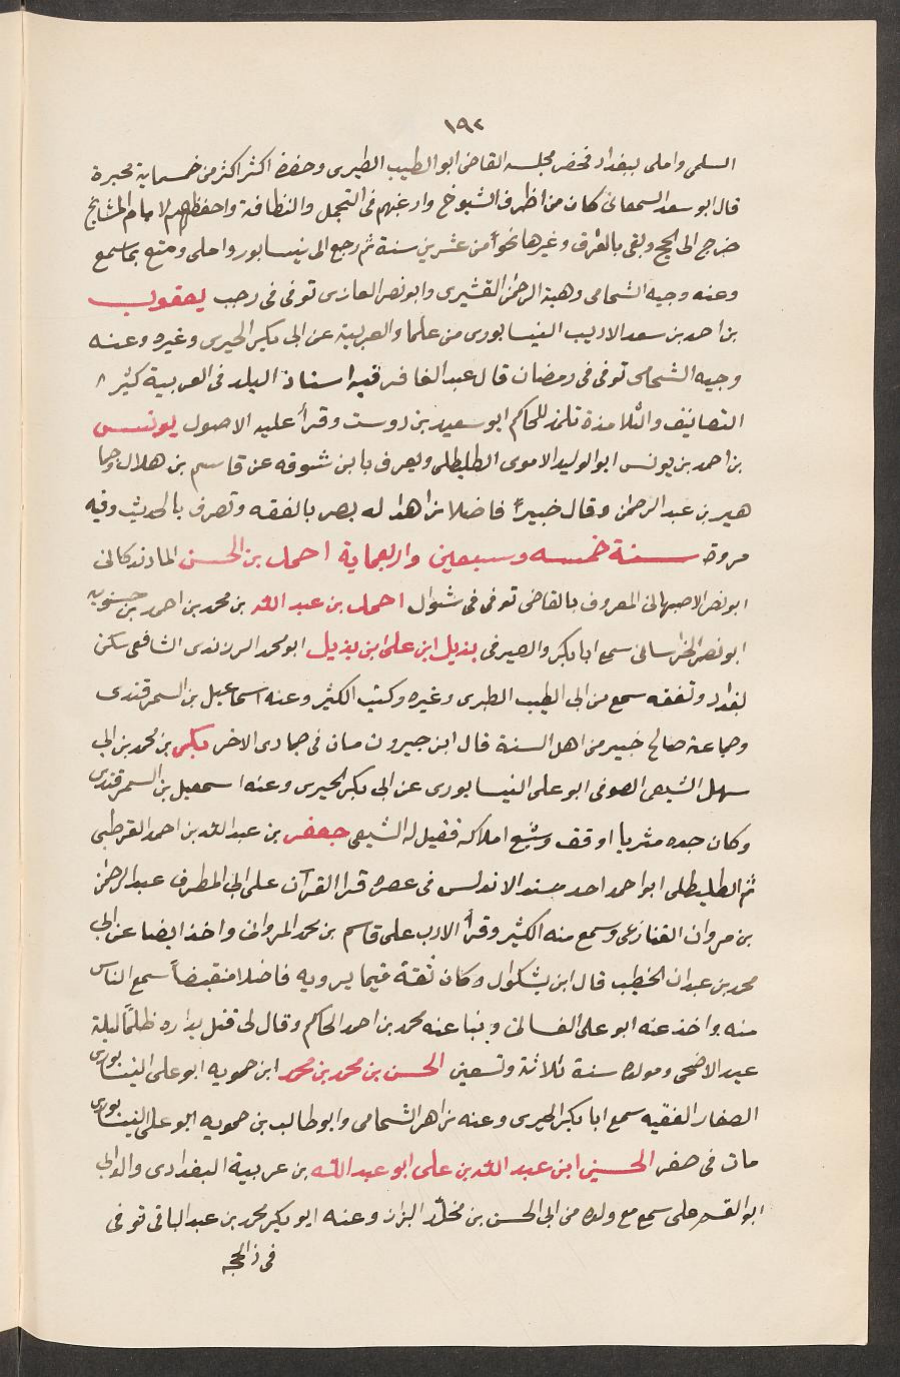 ١٩٢
السلمى واملى ببغداد فحضر مجلسه القاضى ابو الطيب الطبرى وحضره اكثر اكثر من خسماية محبرة
قال ابو سعد السمعانى كان من اظرف الشيوخ وارغبهم فى التجمل والنظافة واحفظهم لايام المشايخ
خرج الى الحج وبقى بالعراق وغيرها نحواً من عشرين سنة ثم رجع الى نيسابور واملى ومتع بما سمع
وعنه وجيه الشحامى وهبة الرحمن القشيرى وابو نصر الغازى توفى فى رجب يعقوب
بن احمد بن سعد الاديب النيسابورى من علماء العربية عن ابى بكر الحيرى وغيره وعنه
وجيه الشحامى توفى فى رمضان قال عبد الغافر فيه استاذ البلد فى العربية كثير
التصانيف والتلامذة تلمذ للحاكم ابو سعيد بن دوست وقرأ عليه الاصول يونس
بن احمد بن يونس ابو الوليد الاموى الطليطلى ويعرف بابن شوقه عن قاسم بن هلال وجما
هير بن عبد الرحمن وقال خبيراً فاضلا زاهدا له بصر بالفقه وتصرف بالحديث وفيه
مروة سنة خمسه وسبعين واربعماية احمد بن الحسن
ابو نصر الاصبهانى المعروف بالقاضى توفى فى شوال احمد بن عبد الله بن محمد بن احمد بن حسنويه
ابو نصر الخراسانى سمع ابا بكر والصيرفى بذيل ابن على ابن بذيل ابو محمد البرزندى الشافعى سكن
بغداد وتفقه سمع من ابى الطيب الطبرى وغيره وكتب الكثير وعنه اسماعيل بن السمرقندى
وجماعة صالح خبير من اهل السنة قال ابن خيرون مات فى جمادى الاخر بكر بن محمد بن ابى
سهل الشيعى الصوفى ابو على النيسابورى عن ابى بكر الحيرى وعنه اسمعيل بن السمرقندى
وكان جده مثريا اوقف وشيع املاكه فقيل له الشيعى جعفر بن عبد الله بن احمد القرطبى
ثم الطليطلى ابو احمد احد مسند الاندلس فى عصره قرا القرآن على ابى المطرف عبد الرحمن
بن مروان القنازعى وسمع منه الكثير وقرأ الادب على قاسم بن محمد المروانى واخذ ايضا عن ابى
محمد بن عبدان الخطيب قال ابن بشكوال وكان ثقة فيما يرويه فاضلا منقبضاً سمع الناس
منه واخذ عنه ابو على الغسانى ونبا عنه محمد بن احمد الحاكم وقال لى قتل بداره ظلماً ليلة
عيد الاضحى ومولده سنة ثلاثة وتسعين الحسن بن محمد بن محمد ابن حمويه ابو على النيسابورى
الصفار الفقيه سمع ابا بكر الحيرى وعنه زاهر الشحامى وابو طالب بن حمويه ابو على النيسابورى
مات فى صفر الحسين ابن عبد الله بن على ابو عبد الله بن عريبة البغدادى والد ابى
ابو القسم على سمع مع ولده من ابى الحسن بن مخلد البزاز وعنه ابو بكر محمد بن عبد الباقى توفى
فى ذى الحجه